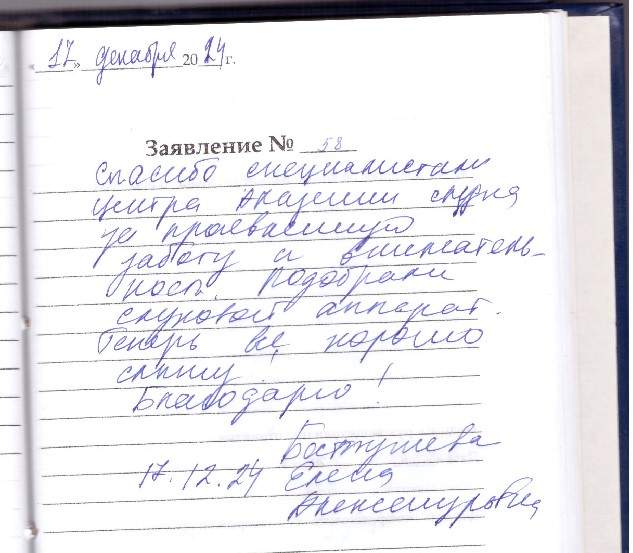 «17» декабря 2024 г.
Заявление № 58
Спасибо специалистам
центра Академии слуха
за проявленную
заботу и вниматель-
ность. Подобрали
слуховой аппарат.
Теперь все хорошо
слышу.
Благодарю!
17.12.24 Елена
Александровна